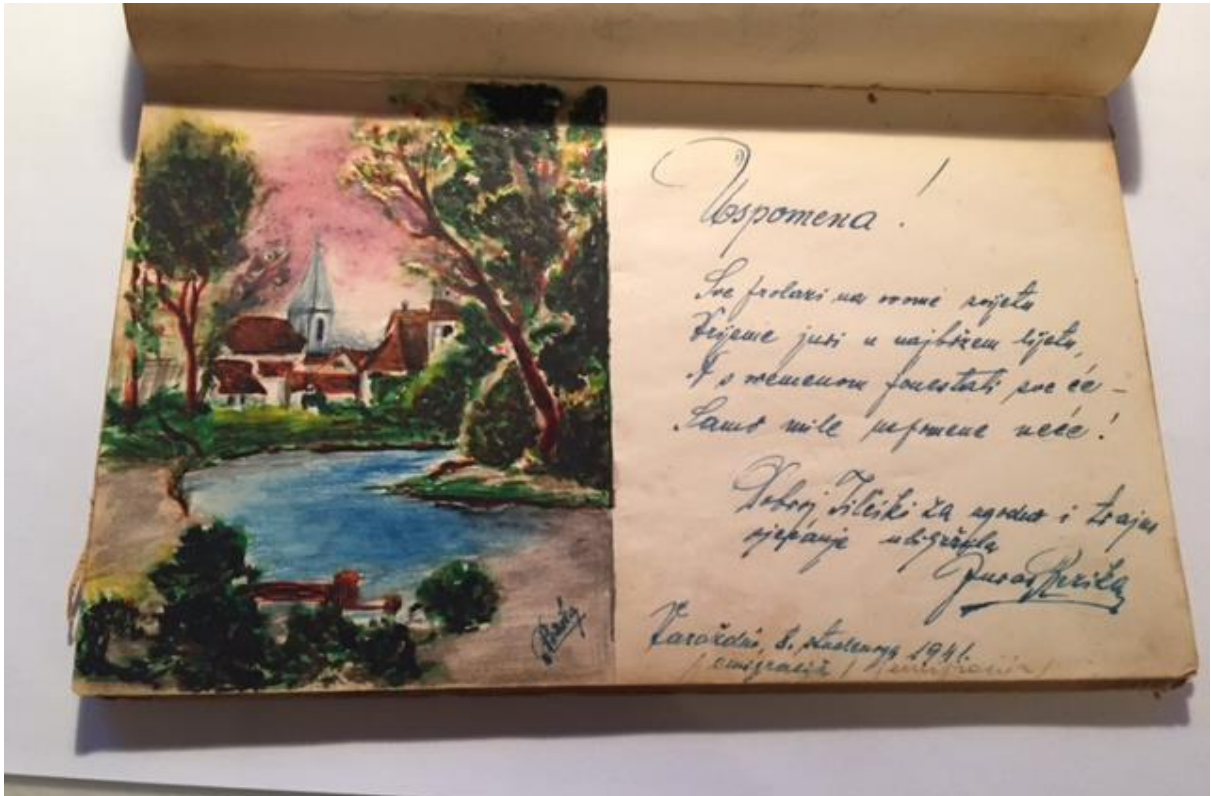 Uspomena!
Sve prolazi na ovome svijetu
Vrijeme juri u najbržem lijetu,
A s vremenom ponestati sve će –
Samo mile uspomene neće!
Dobroj Tilčiki za ugodno i trajno
sjećanje ubilježila
Rezika
Varaždin, 8. studenoga 1941.
/ emigracija / emigracija /